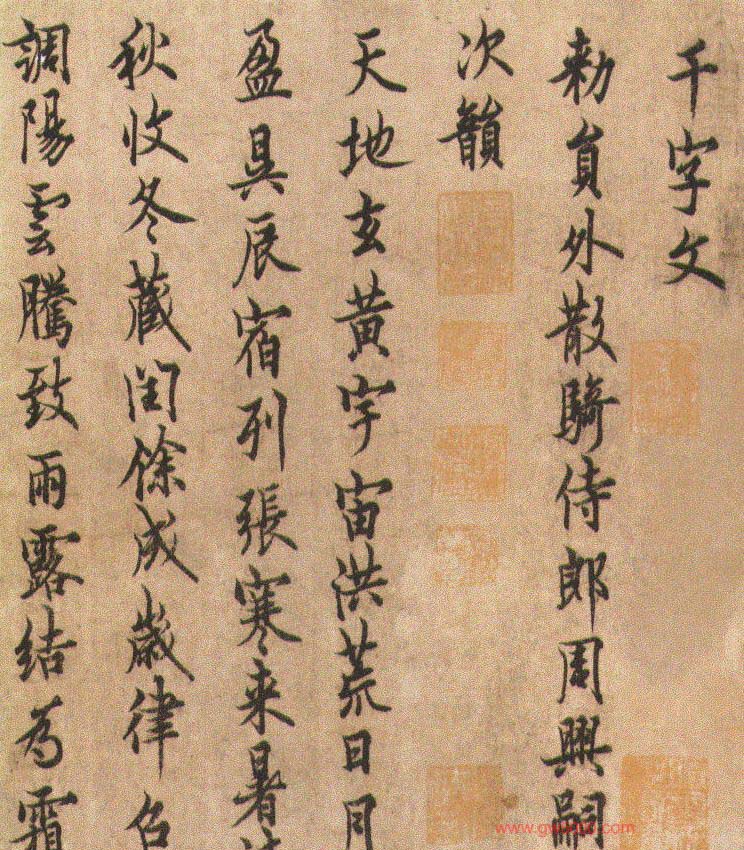 千字文
勑員外散騎侍郎周興嗣
次韻
天地玄黃宇宙洪荒日月
盈昃辰宿列張寒来暑
秋收冬藏閏餘成歲律召
調陽雲騰致雨露結為霜